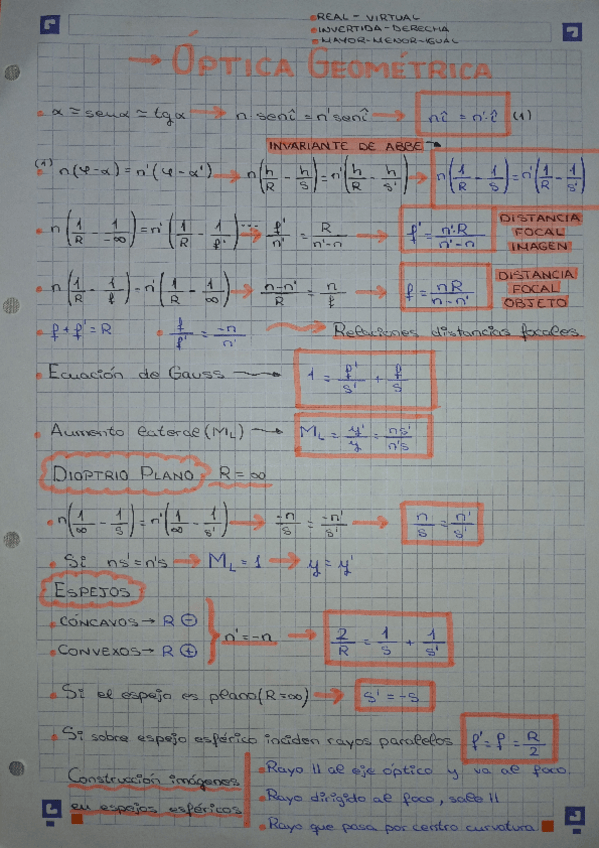 • REAL - VIRTUAL
• INVERTIDA-DERECHA
• MAYOR-MENOR-IGUAL
→ ÓPTICA GEOMÉTRICA
• α ≃ senα ≃ tgα → n senî = n'senî → nî = n'·î (1)
INVARIANTE DE ABBE →
• (1) n(φ-α) = n'(φ-α') → n(h/R - h/S) = n'(h/R - h/S) → n(1/R - 1/S) = n'(1/R - 1/S')
• n(1/R - 1/-∞) = n'(1/R - 1/f') ...→ f'/n' = R/n'-n → f' = n'·R/n'-n DISTANCIA FOCAL IMAGEN
• n(1/R - 1/f) - n'(1/R - 1/∞) → n-n'/R = n/f → f = nR/n-n' DISTANCIA FOCAL OBJETO
• f + f' = R • f/f' = -n/n' → Relaciones distancias focales
• Ecuación de Gauss → 1 = f'/s' + f/s
• Aumento lateral (ML) → ML = y'/y = ns'/n's
DIOPTRIO PLANO R = ∞
• n(1/∞ - 1/S) = n'(1/∞ - 1/S') → -n/S = -n'/S' → n/S = n'/S'
• Si ns' = n's → ML = 1 → y = y'
ESPEJOS
• CÓNCAVOS → R ⊖
• CONVEXOS → R ⊕ } n' = -n → 2/R = 1/S + 1/S'
• Si el espejo es plano (R=∞) → S' = -S
• Si sobre espejo esférico inciden rayos paralelos f' = f = R/2
Construcción imágenes
en espejos esféricos
• Rayo || al eje óptico y va al foco
• Rayo dirigido al foco, sale ||
• Rayo que pasa por centro curvatura